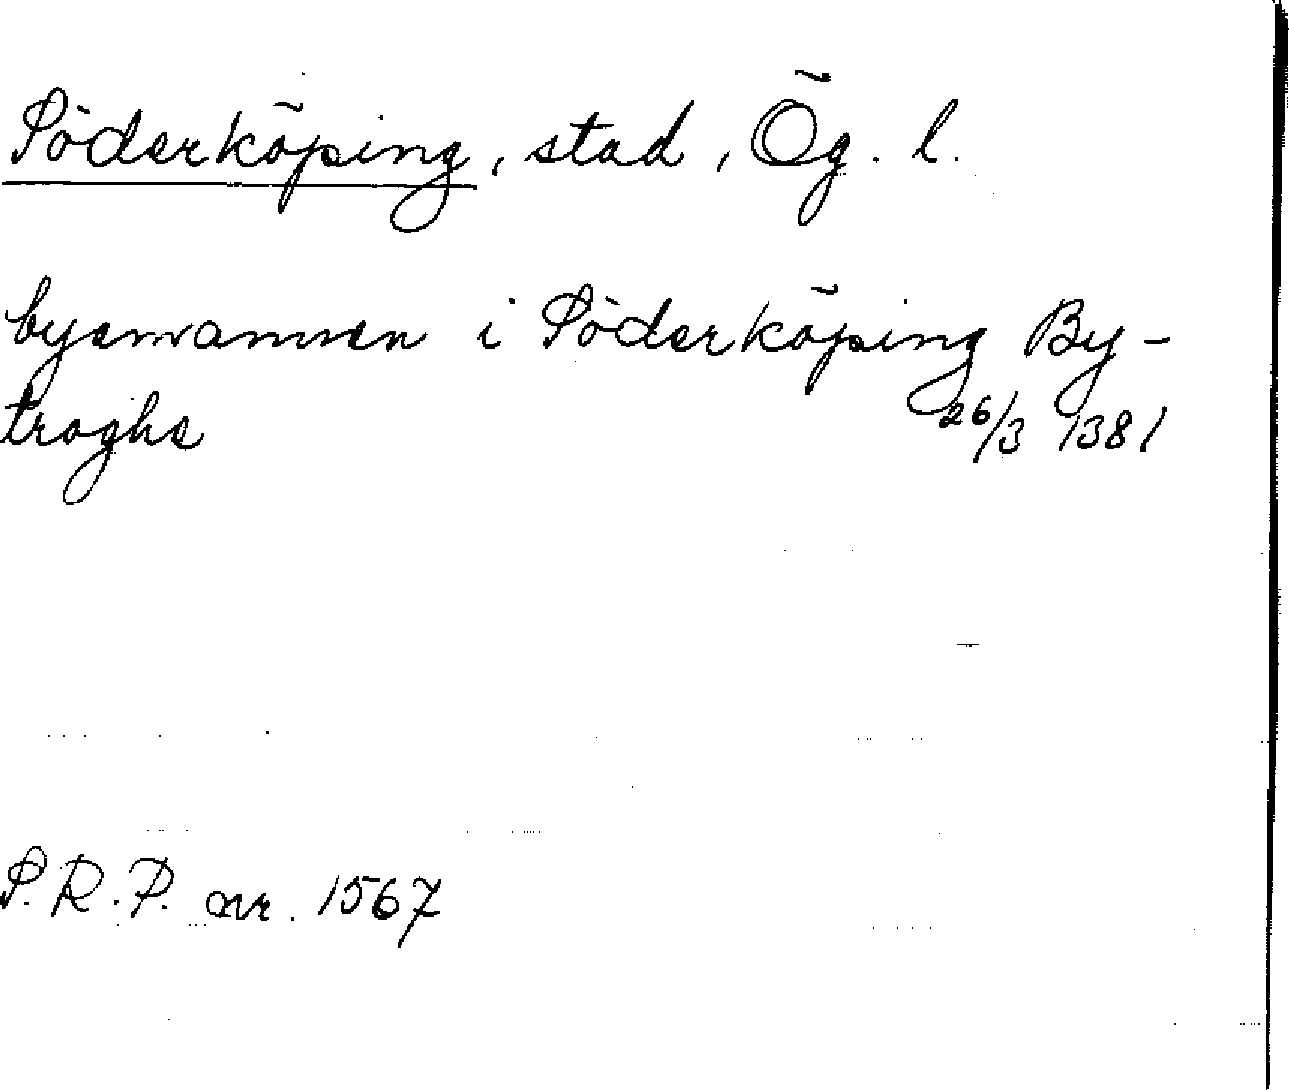 Söderköping, stad, Ög. l.
byamannen i Söderköping By-
troghe
26/3 1381
S.R.P. nr. 1567